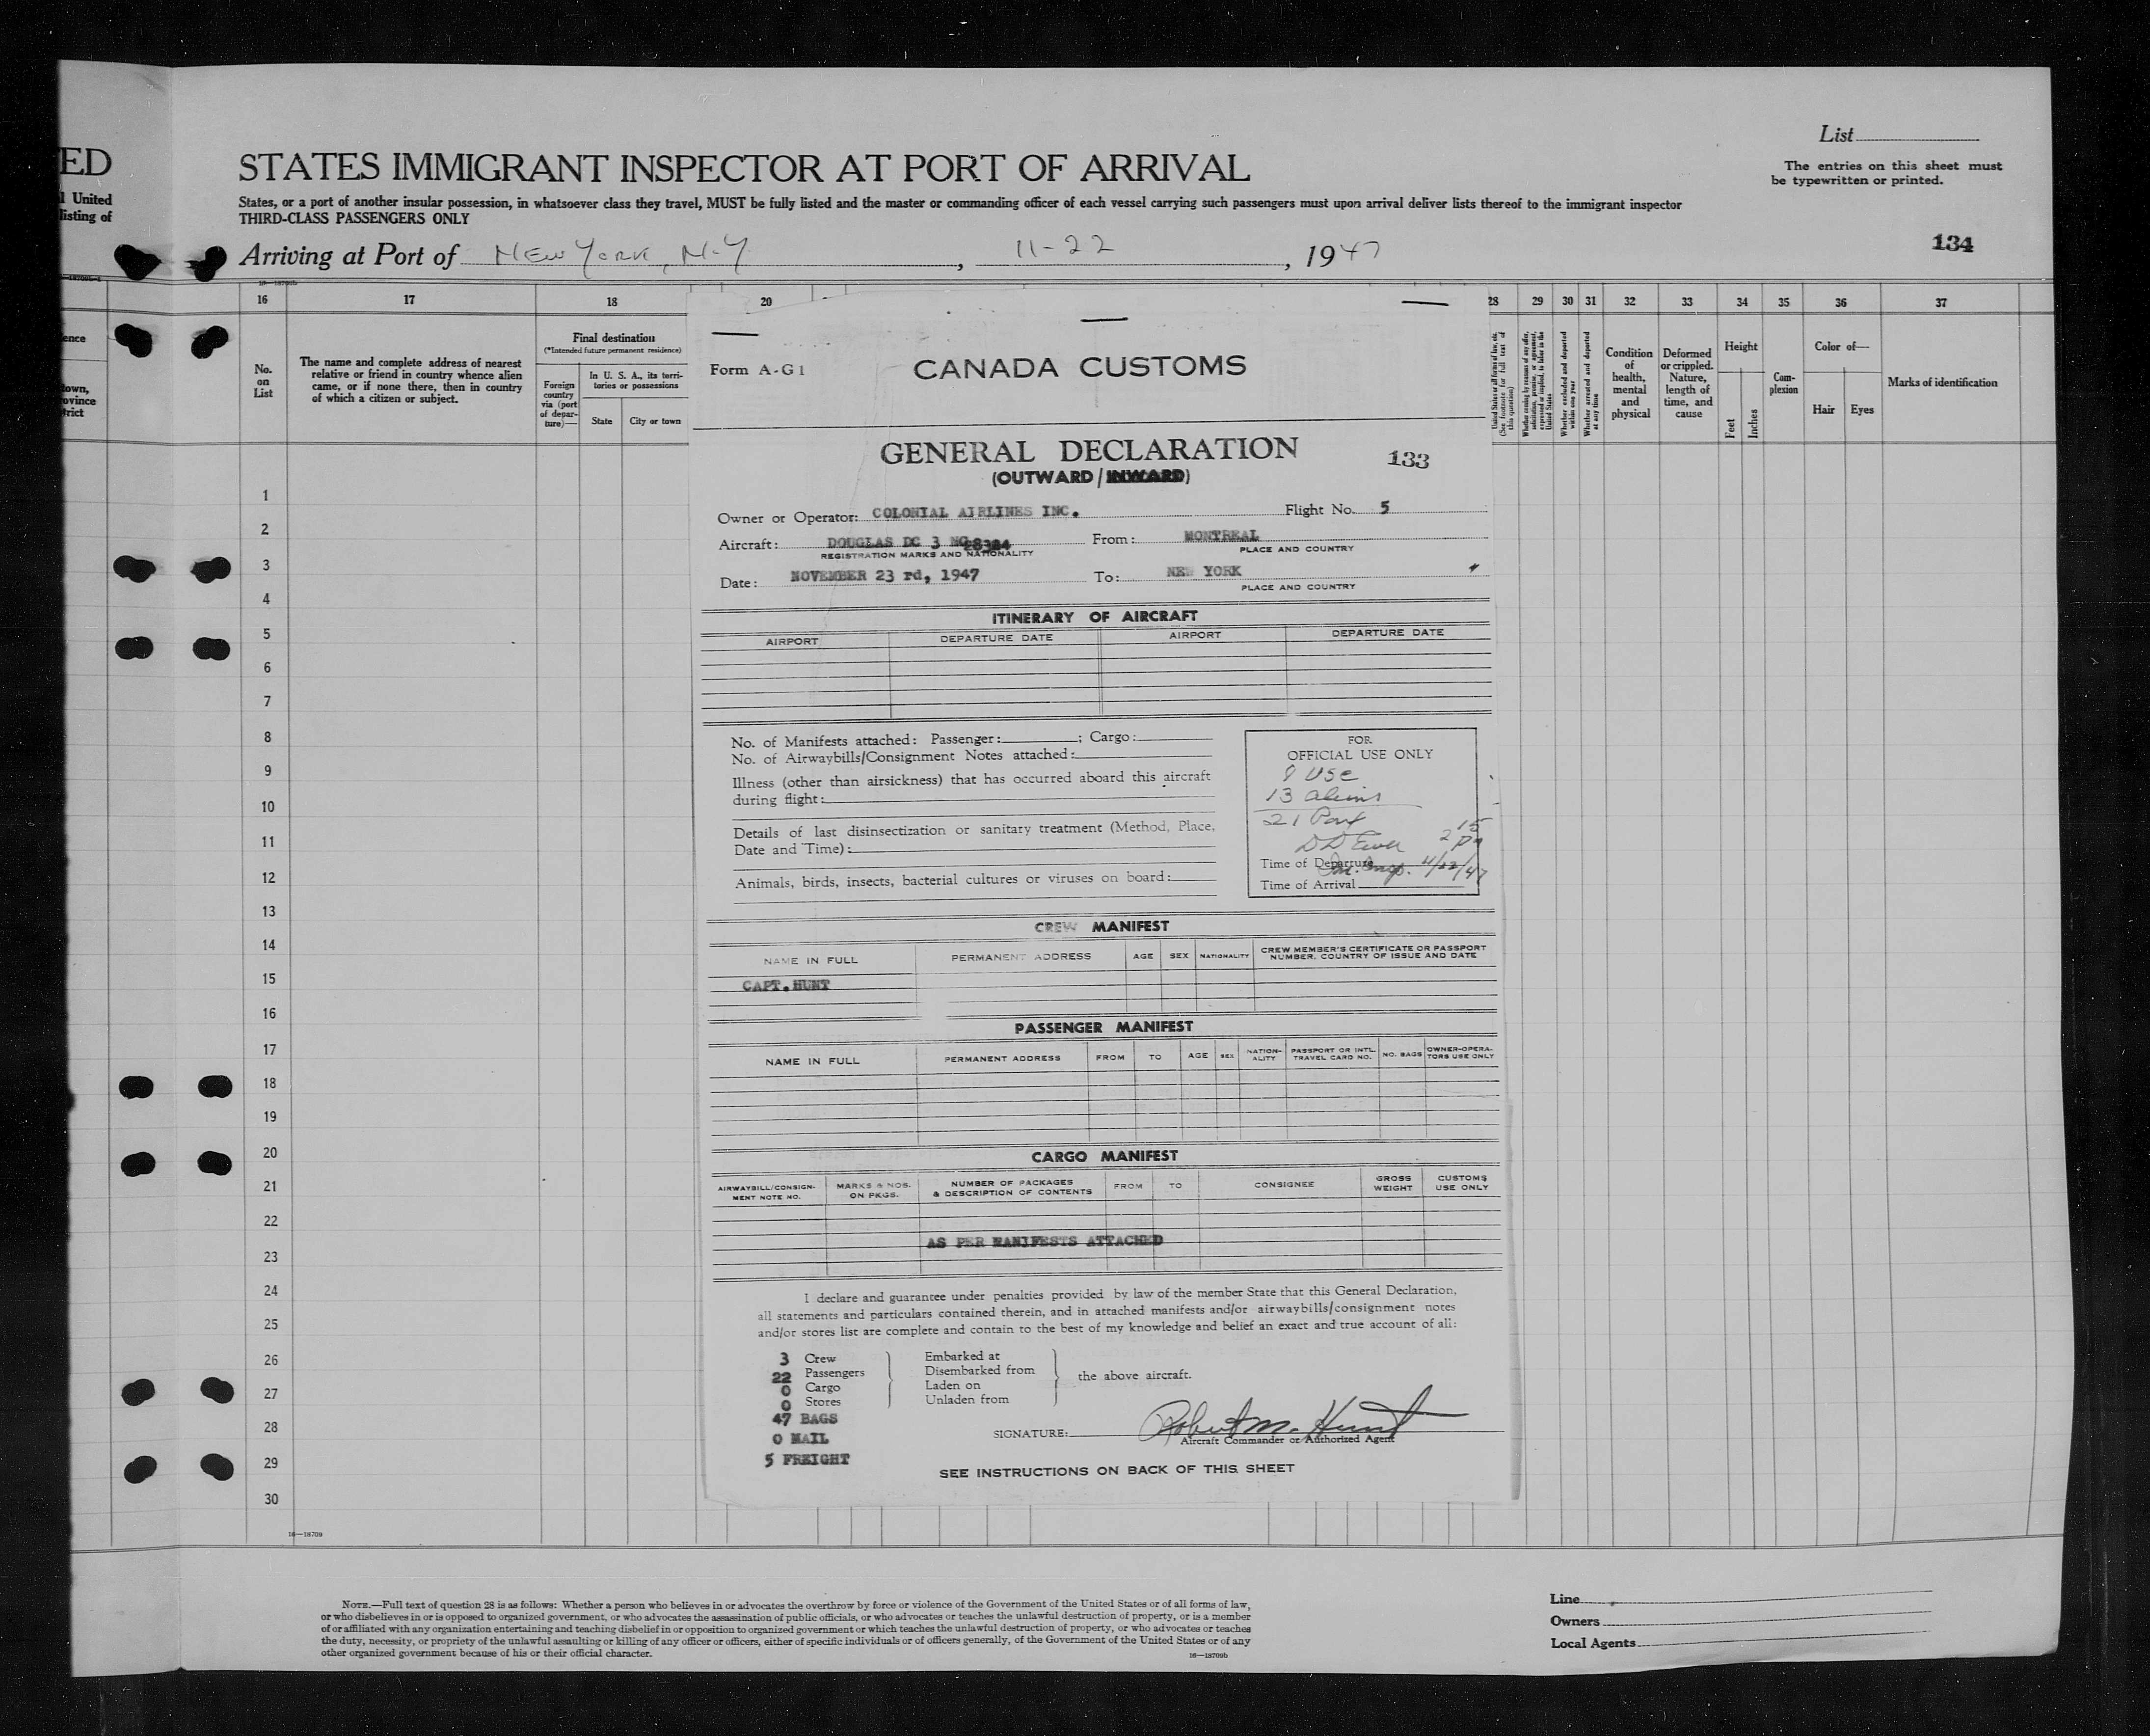 ED
l United
listing of
STATES IMMIGRANT INSPECTOR AT PORT OF ARRIVAL
States, or a port of another insular possession, in whatsoever class they travel, MUST be fully listed and the master or commanding officer of each vessel carrying such passengers must upon arrival deliver lists thereof to the immigrant inspector
THIRD-CLASS PASSENGERS ONLY
List
The entries on this sheet must
be typewritten or printed.
134
Arriving at Port of NEW YORK, N-Y, 11-22, 1947
16 17 18 20 28 29 30 31 32 33 34 35 36 37
ence
town,
ovince
trict
No.
on
List
The name and complete address of nearest
relative or friend in country whence alien
came, or if none there, then in country
of which a citizen or subject.
Final destination
(*Intended future permanent residence)
Foreign
country
via (port
of depar-
ture)—
In U. S. A., its terri-
tories or possessions
State
City or town
Whether excluded and deported
within one year
Whether arrested and deported
at any time
Condition
of
health,
mental
and
physical
Deformed
or crippled.
Nature,
length of
time, and
cause
Height
Feet
Inches
Com-
plexion
Color of—
Hair
Eyes
Marks of identification
1
2
3
4
5
6
7
8
9
10
11
12
13
14
15
16
17
18
19
20
21
22
23
24
25
26
27
28
29
30
16—18709
Form A-G1
CANADA CUSTOMS
GENERAL DECLARATION
133
(OUTWARD / INWARD)
Owner or Operator: COLONIAL AIRLINES INC. Flight No. 5
Aircraft: DOUGLAS DC 3 NC28384 From: MONTREAL
REGISTRATION MARKS AND NATIONALITY PLACE AND COUNTRY
Date: NOVEMBER 23 rd, 1947 To: NEW YORK
PLACE AND COUNTRY
ITINERARY OF AIRCRAFT
AIRPORT DEPARTURE DATE AIRPORT DEPARTURE DATE
No. of Manifests attached: Passenger: ; Cargo:
No. of Airwaybills/Consignment Notes attached:
Illness (other than airsickness) that has occurred aboard this aircraft
during flight:
Details of last disinsectization or sanitary treatment (Method, Place,
Date and Time):
Animals, birds, insects, bacterial cultures or viruses on board:
FOR
OFFICIAL USE ONLY
8 USC
13 aliens
21 Pax
2 15 Pm
Time of Departure
Imm. Insp. 11/22/47
Time of Arrival
CREW MANIFEST
NAME IN FULL PERMANENT ADDRESS AGE SEX NATIONALITY CREW MEMBER'S CERTIFICATE OR PASSPORT
NUMBER, COUNTRY OF ISSUE AND DATE
CAPT. HUNT
PASSENGER MANIFEST
NAME IN FULL PERMANENT ADDRESS FROM TO AGE SEX NATION-
ALITY PASSPORT OR INTL.
TRAVEL CARD NO. NO. BAGS OWNER-OPERA-
TORS USE ONLY
CARGO MANIFEST
AIRWAYBILL/CONSIGN-
MENT NOTE NO. MARKS & NOS.
ON PKGS. NUMBER OF PACKAGES
& DESCRIPTION OF CONTENTS FROM TO CONSIGNEE GROSS
WEIGHT CUSTOMS
USE ONLY
AS PER MANIFESTS ATTACHED
I declare and guarantee under penalties provided by law of the member State that this General Declaration,
all statements and particulars contained therein, and in attached manifests and/or airwaybills/consignment notes
and/or stores list are complete and contain to the best of my knowledge and belief an exact and true account of all:
3 Crew Embarked at
22 Passengers Disembarked from the above aircraft.
0 Cargo Laden on
0 Stores Unladen from
47 BAGS
0 MAIL
5 FREIGHT
SIGNATURE: Robert M. Hunt
Aircraft Commander or Authorized Agent
SEE INSTRUCTIONS ON BACK OF THIS SHEET
NOTE.—Full text of question 28 is as follows: Whether a person who believes in or advocates the overthrow by force or violence of the Government of the United States or of all forms of law,
or who disbelieves in or is opposed to organized government, or who advocates the assassination of public officials, or who advocates or teaches the unlawful destruction of property, or is a member
of or affiliated with any organization entertaining and teaching disbelief in or opposition to organized government or which teaches the unlawful destruction of property, or who advocates or teaches
the duty, necessity, or propriety of the unlawful assaulting or killing of any officer or officers, either of specific individuals or of officers generally, of the Government of the United States or of any
other organized government because of his or their official character.
16—18709b
Line
Owners
Local Agents